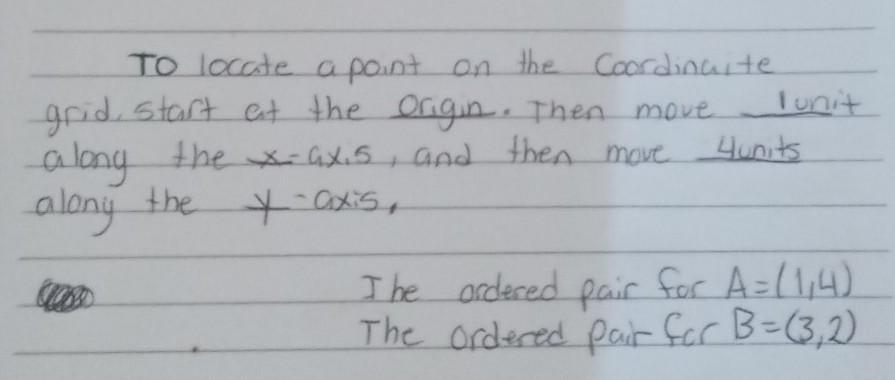 To locate a point on the Coordinaite
grid, start at the Origin. Then move 1unit
along the x-axis, and then move 4units
along the y-axis.
The ordered pair for A=(1,4)
The ordered pair for B=(3,2)